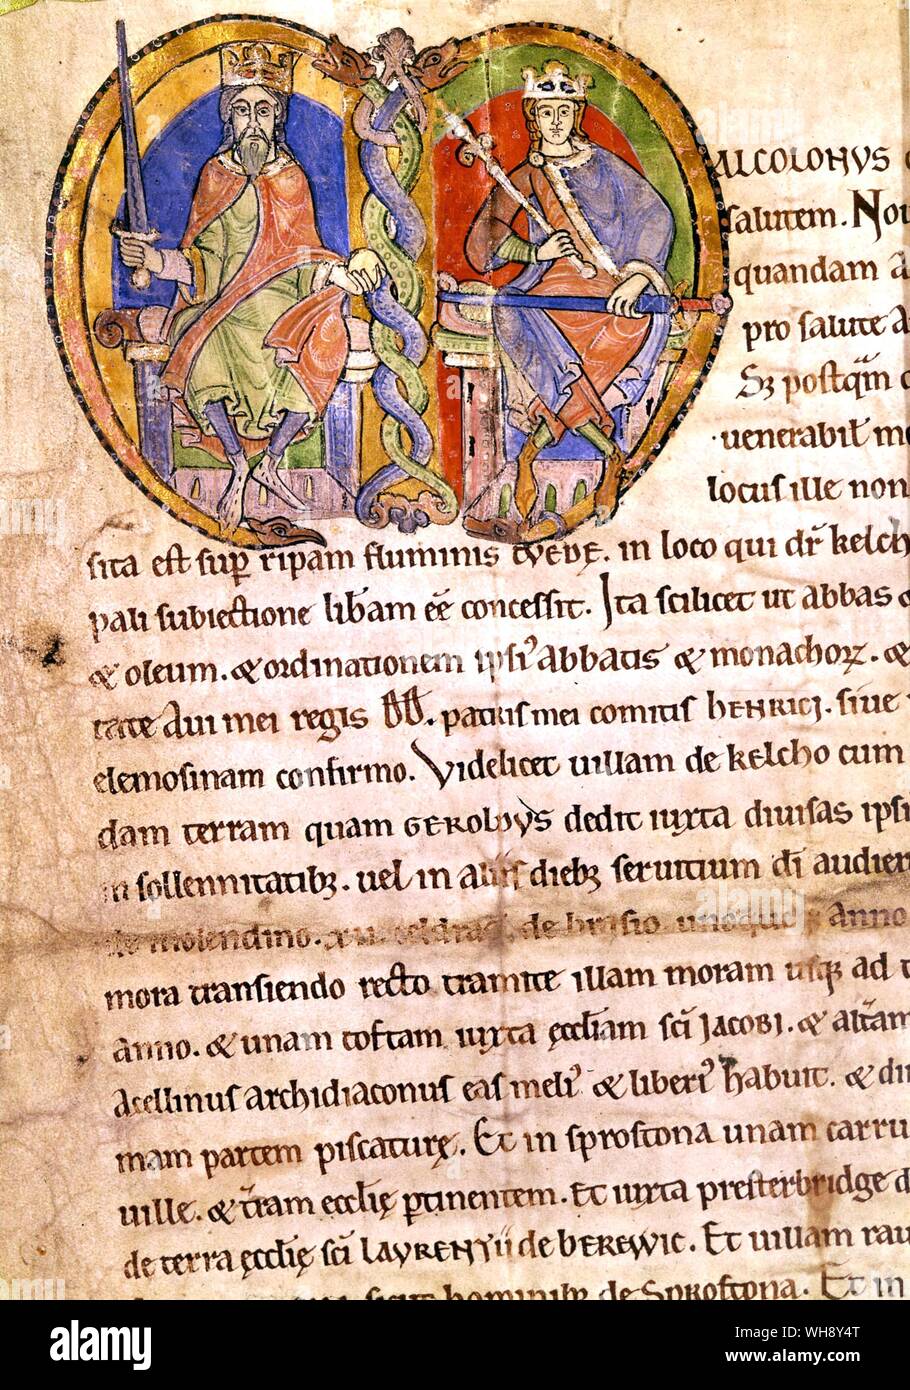 ALCOLOMVS
salutem. Nou
quandam A
pro salute A
Sz postqm̄ c
uenerabil̄ m
locus ille non
sita est sup̄ ripam fluminis tvedę. in loco qui dr̄ kelch
pali subiectione lib̄am ēē concessit. Ita scilicet ut abbas &
& oleum. & ordinationem ipsiꝰ abbatis & monachoꝝ. &
tate Aui mei regis DD. patris mei comitis henrici. siue
elemosinam confirmo. Videlicet uillam de kelcho cum
dam terram quam GEROLDVS dedit iuxta diuisas ipsi
in sollennitatibꝫ. uel in aliis diebꝫ seruitium dī audien
de molendino. de brasio unoquoqꝫ Anno
mora transiendo recto tramite illam moram usqꝫ ad
Anno. & unam toftam iuxta ęccl̄iam sc̄i JACOBI. & alt̄am
Acellinus archidiaconus eas meliꝰ & liberiꝰ habuit. & di
mam partem piscaturę. Et in sprostona unam carru
uille. & t̄ram ecclię ptinentem. Et iuxta presterbridge d
de terra ęcclię sc̄i LAVRENTII de BEREWIC. Et uillam rau
sicut hominibꝫ de Sprostona. Et in
alamy
WH8Y4T
Image ID: WH8Y4T
www.alamy.com